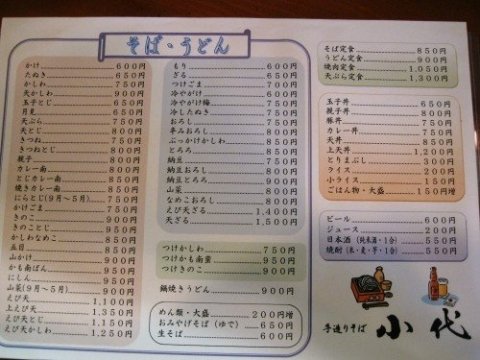 そば・うどん
かけ 600円
たぬき 650円
かしわ 750円
天かしわ 900円
玉子とじ 650円
月見 650円
天ぷら 750円
天とじ 850円
きつね 750円
きつねとじ 850円
親子 850円
カレー南 850円
とじカレー南 850円
焼きカレー南 850円
にらとじ(9月〜5月) 750円
かけごま 700円
きのこ 900円
きのことじ 950円
かしわなめこ 850円
五目 850円
山かけ 850円
かも南ばん 950円
にしん 950円
山菜(9月〜5月) 850円
えび天 1,150円
上えび天 1,350円
えび天とじ 1,150円
えび天かしわ 1,250円
もり 600円
ざる 650円
つけごま 700円
冷やがけ 650円
冷やがけ梅 750円
冷したぬき 750円
おろし 750円
辛みおろし 800円
ぶっかけかしわ 850円
とろろ 850円
納豆 850円
納豆おろし 900円
納豆とろろ 900円
山菜 850円
なめこおろし 850円
えび天ざる 1,400円
天ざる 1,500円
つけかしわ 750円
つけかも南蛮 950円
つけきのこ 900円
鍋焼きうどん 900円
めん類・大盛 200円増
おみやげそば(ゆで) 650円
生そば 600円
そば定食 850円
うどん定食 900円
焼肉定食 1,050円
天ぷら定食 1,300円
玉子丼 650円
親子丼 750円
豚丼 750円
カレー丼 750円
天丼 850円
上天丼 1,200円
とりまぶし 300円
ライス 200円
小ライス 150円
ごはん物・大盛 150円増
ビール 600円
ジュース 200円
日本酒(純米酒・1合) 550円
焼酎(米・麦・芋・1合) 550円
手造りそば 小代